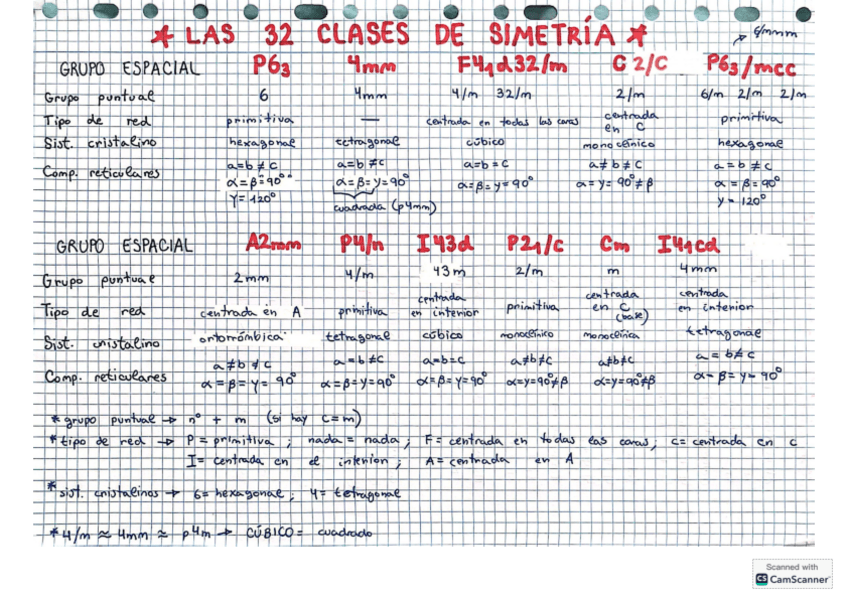 * LAS 32 CLASES DE SIMETRÍA *
→ 6/mmm
GRUPO ESPACIAL P6₃ 4mm F4₁d32/m C 2/C P6₃/mcc
Grupo puntual 6 4mm 4/m 32/m 2/m 6/m 2/m 2/m
Tipo de red primitiva — centrada en todas las caras centrada en C primitiva
Sist. cristalino hexagonal tetragonal cúbico monoclínico hexagonal
Comp. reticulares a=b≠c a=b≠c a=b=c a≠b≠c a=b≠c
α=β=90° α=β=γ=90° α=β=γ=90° α=γ=90°≠β α=β=90°
γ=120° cuadrada (p4mm) γ=120°
GRUPO ESPACIAL A2mm P4/n I43d P2₁/c Cm I4₁cd
Grupo puntual 2mm 4/m 43m 2/m m 4mm
Tipo de red centrada en A primitiva centrada en interior primitiva centrada en C (base) centrada en interior
Sist. cristalino ortorrómbica tetragonal cúbico monoclínico monoclínica tetragonal
Comp. reticulares a≠b≠c a=b≠c a=b=c a≠b≠c a≠b≠c a=b≠c
α=β=γ=90° α=β=γ=90° α=β=γ=90° α=γ=90°≠β α=γ=90°≠β α=β=γ=90°
* grupo puntual → nº + m (si hay c=m)
* tipo de red → P = primitiva ; nada = nada ; F = centrada en todas las caras ; c = centrada en c
I = centrada en el interior ; A = centrada en A
* sist. cristalinos → 6 = hexagonal ; 4 = tetragonal
* 4/m ≈ 4mm ≈ p4m → CÚBICO = cuadrado
Scanned with
CS CamScanner